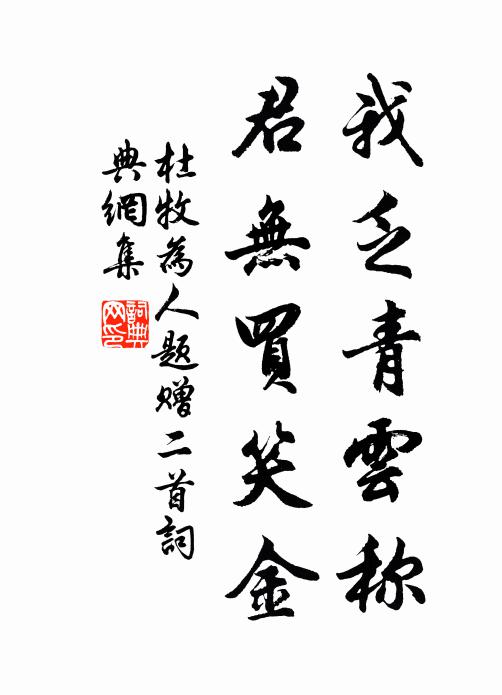 我乏青雲称
君無買笑金
杜牧為人題赠二首詞
典網集
詞典网印